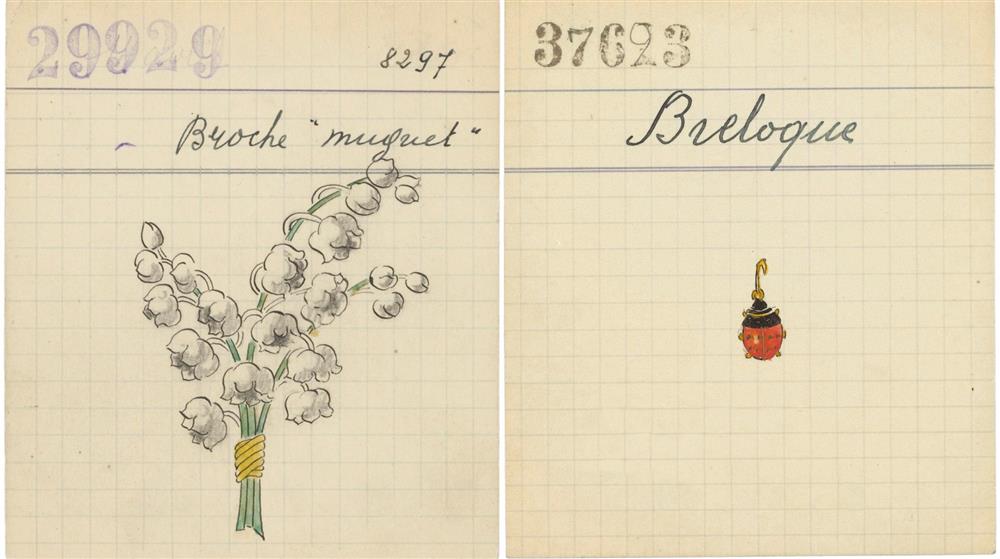 29929
8297
Broche "muguet"
37623
Breloque